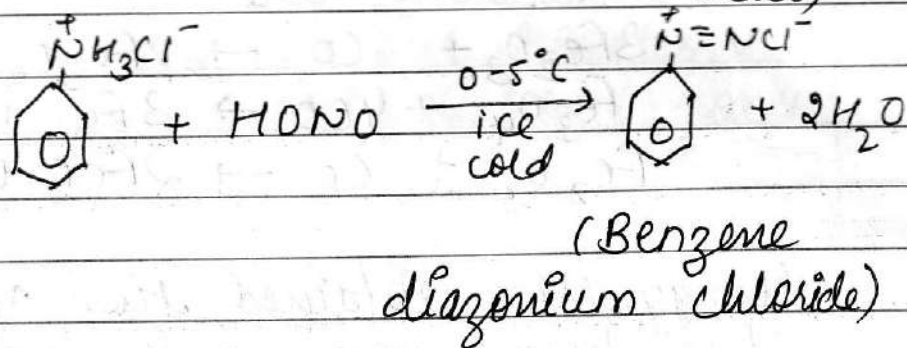 N⁺H₃Cl⁻ + HONO 0-5°C ice cold → N⁺≡NCl⁻ + 2H₂O
(Benzene
diazonium chloride)